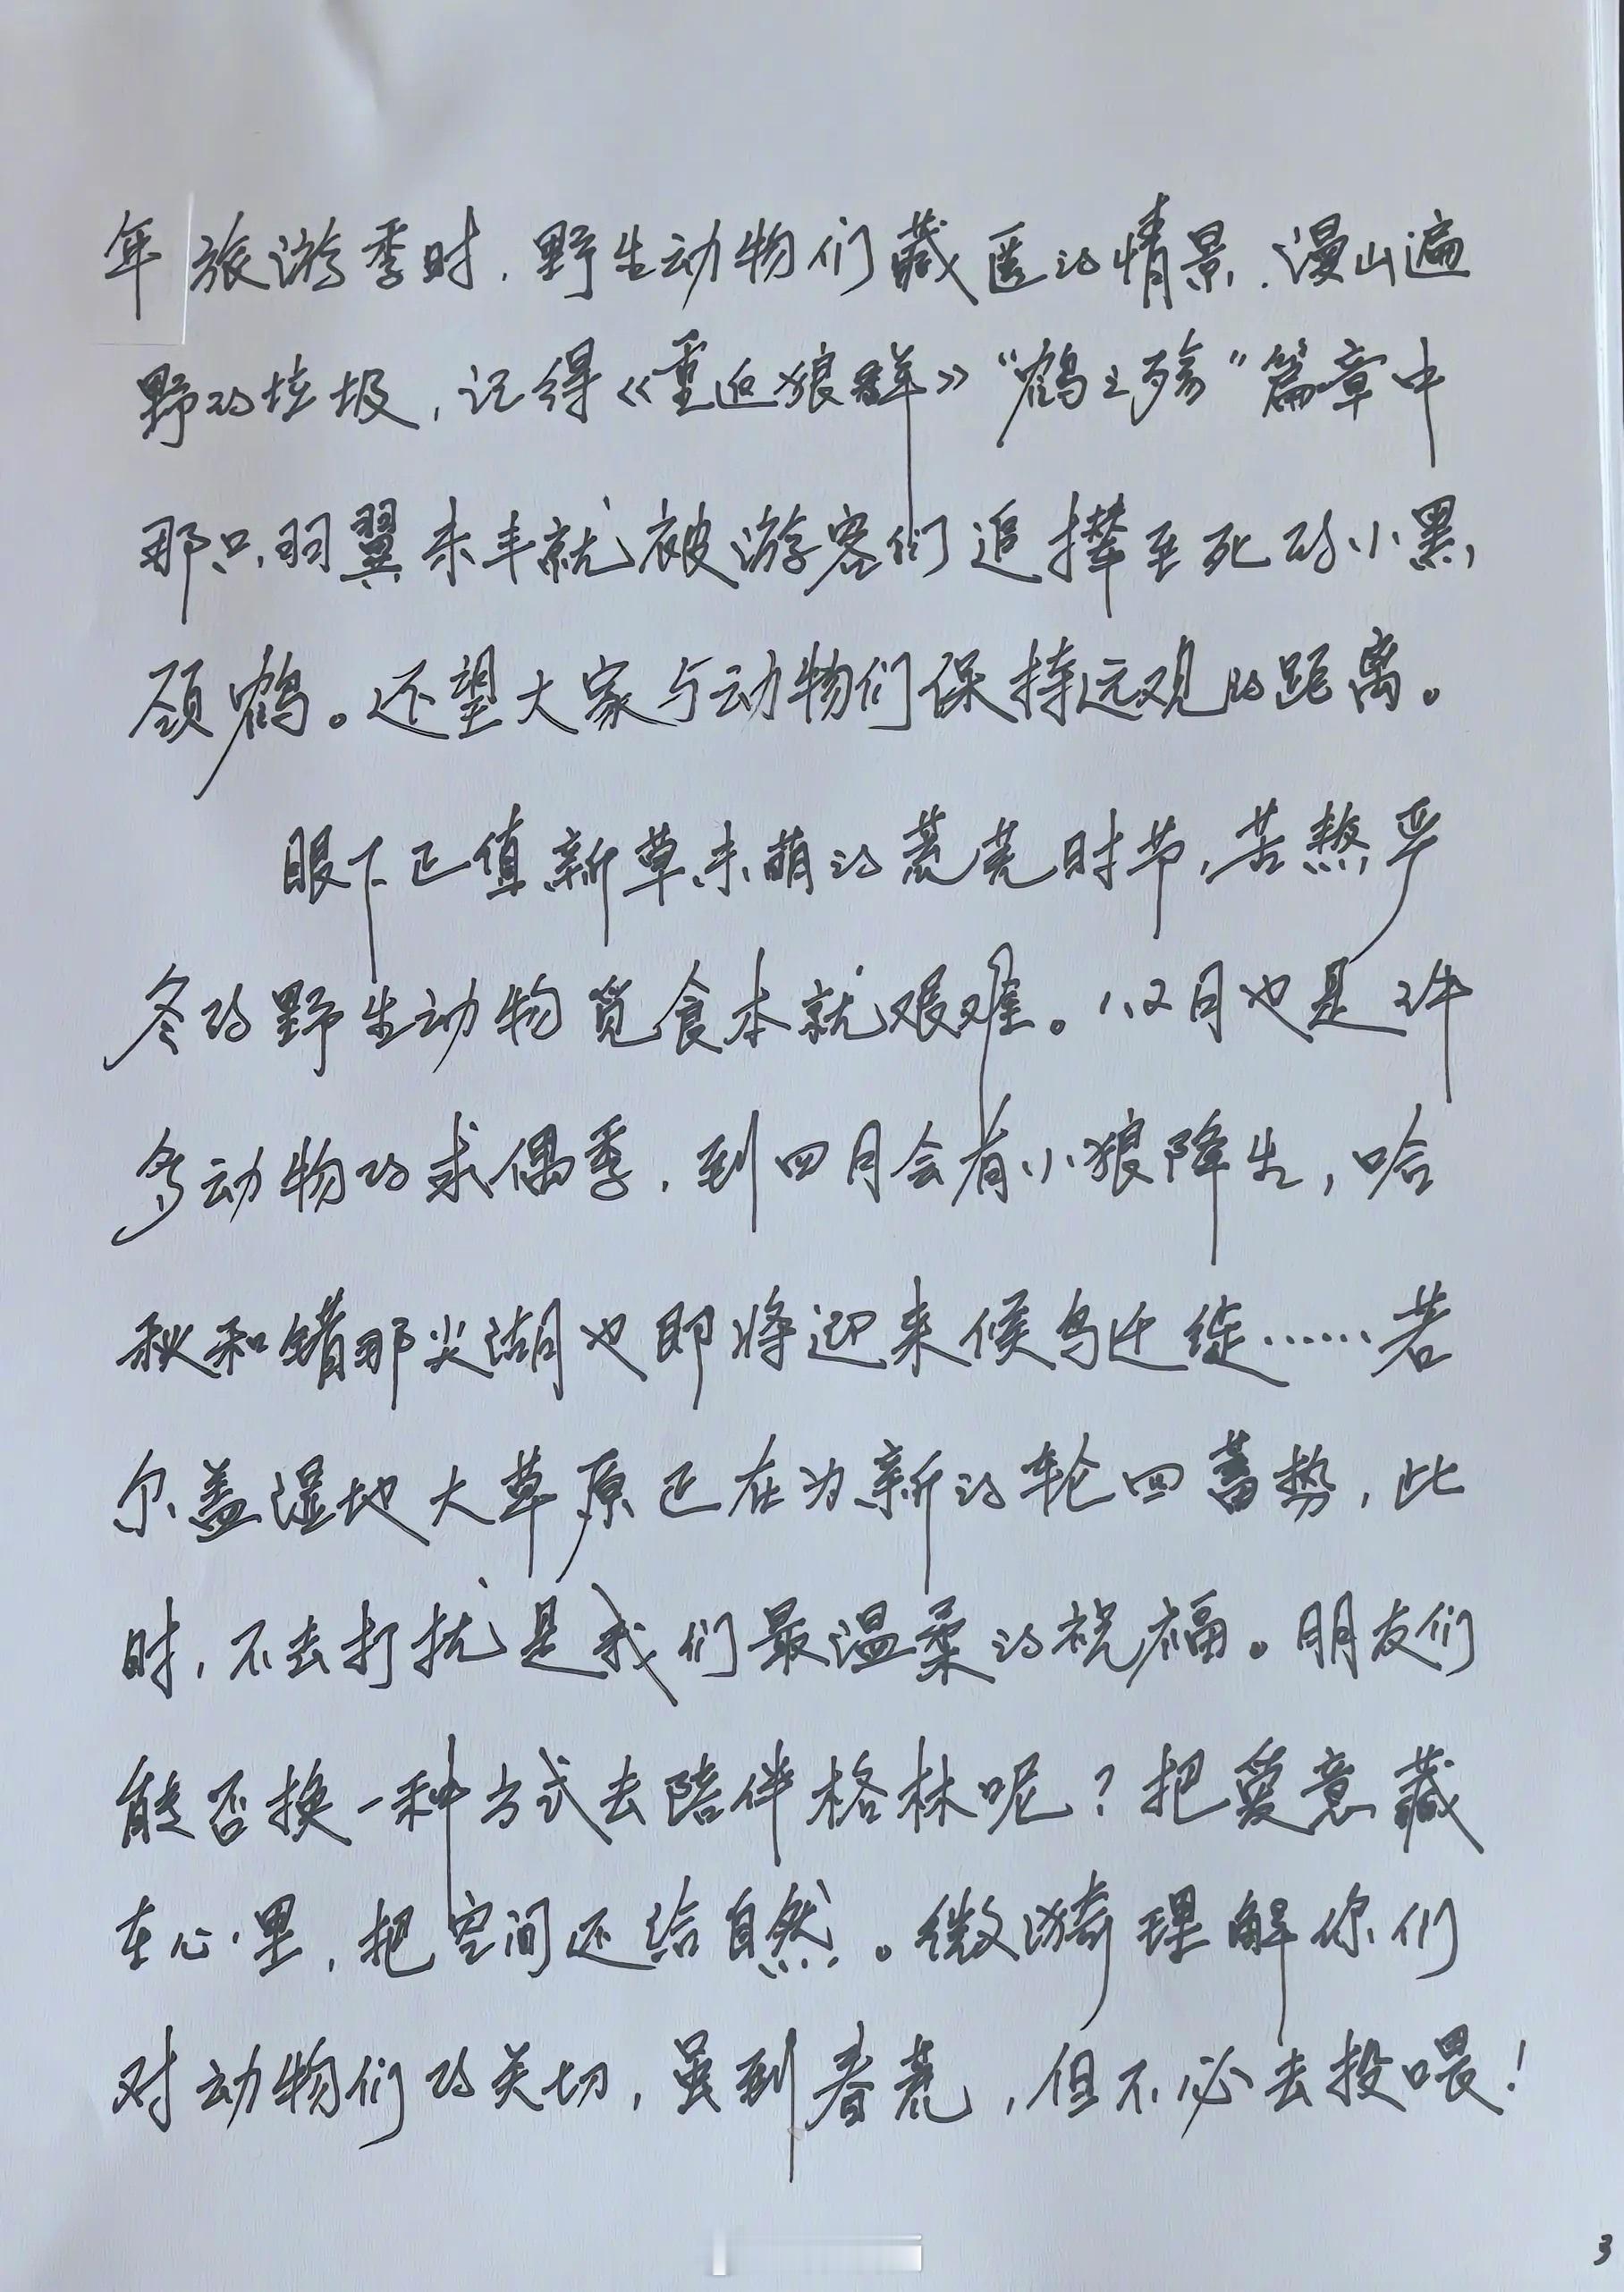 年旅游季时，野生动物们藏匿的情景，漫山遍
野的垃圾，记得《重返狼群》“鹤之殇”篇章中
那只羽翼未丰就被游客们追撵至死的小黑
颈鹤。还望大家与动物们保持远观的距离。
眼下正值新草未萌的荒芜时节，苦熬严
冬的野生动物觅食本就艰难。八、双月也是许
多动物的求偶季，到四月会有小狼降生，哈
秋和错那尖湖也即将迎来候鸟迁徙……若
尔盖湿地大草原正在为新的轮回蓄势，此
时，不去打扰是我们最温柔的祝福。朋友们
能否换一种方式去陪伴格林呢？把爱意藏
在心里，把空间还给自然。微漪理解你们
对动物们的关切，虽到春荒，但不必去投喂！
3